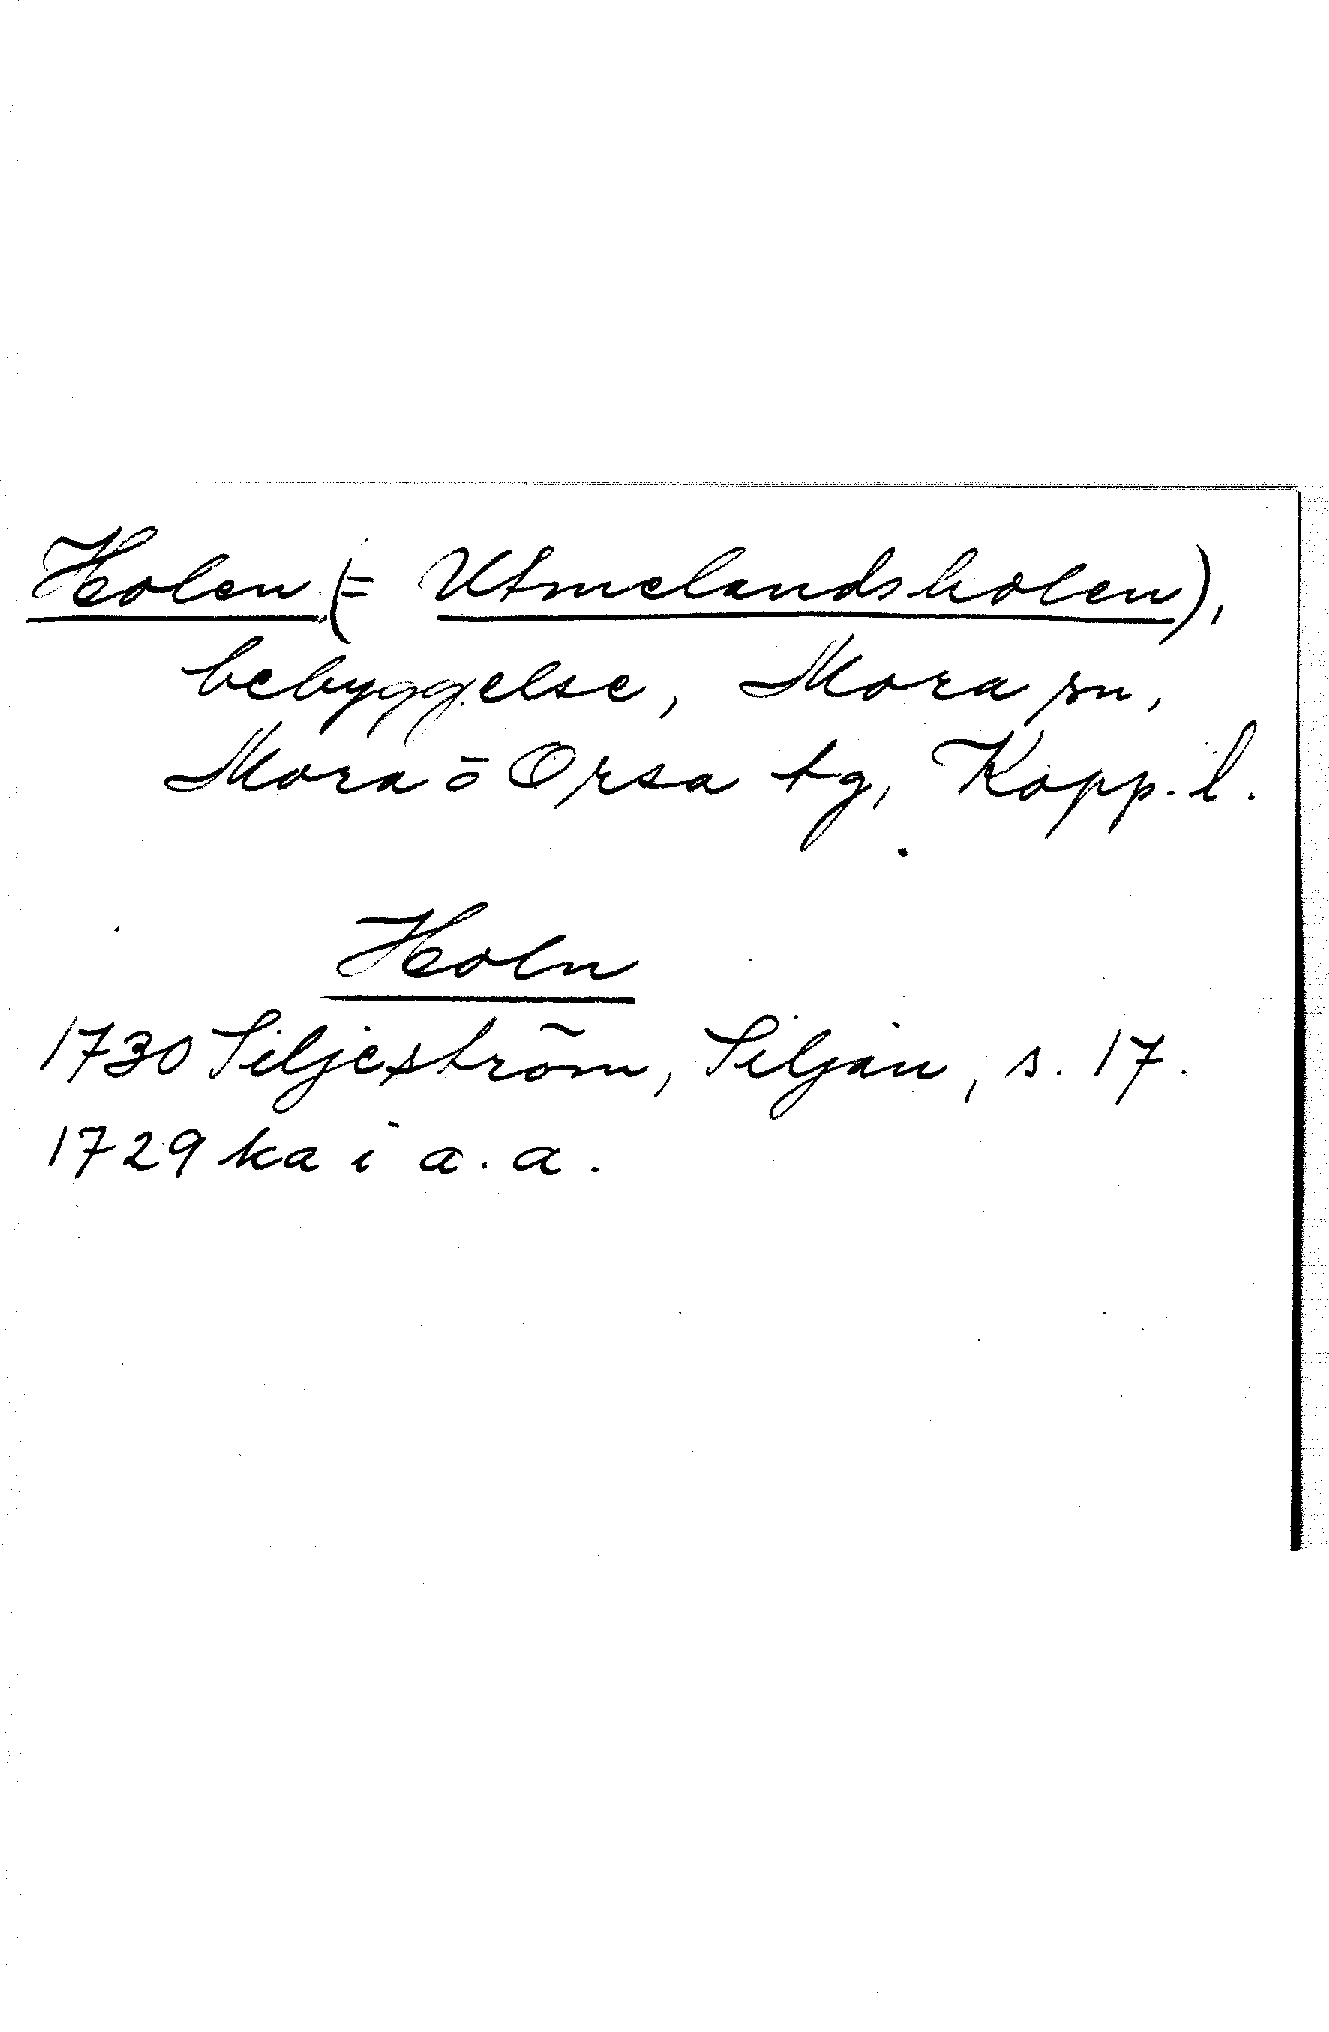 Holen (= Utmelandsholen),
bebyggelse, Mora sn,
Mora o Orsa tg, Kopp. l.
Holn
1730 Siljeström, Siljan, s. 17.
1729 ka i a. a.